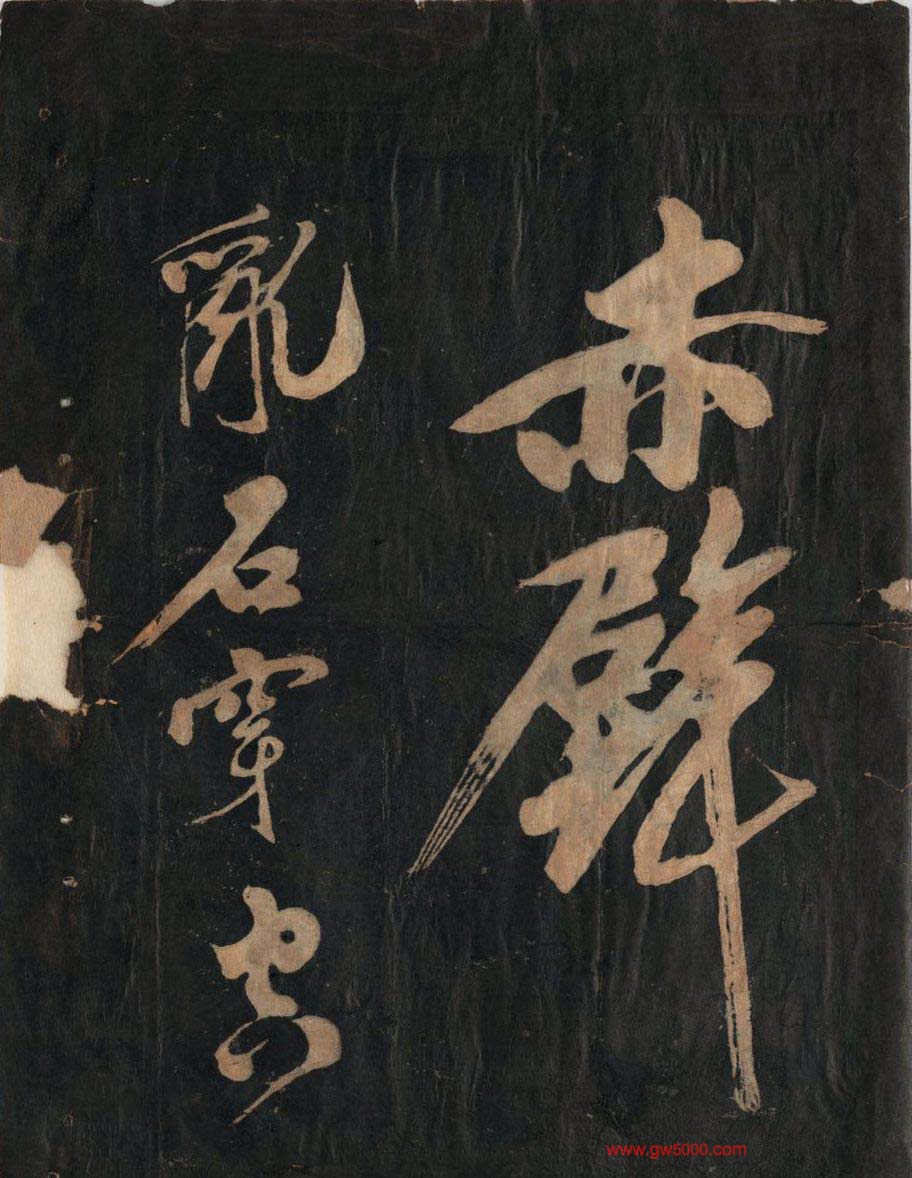 赤壁
亂石穿空
www.gw5000.com